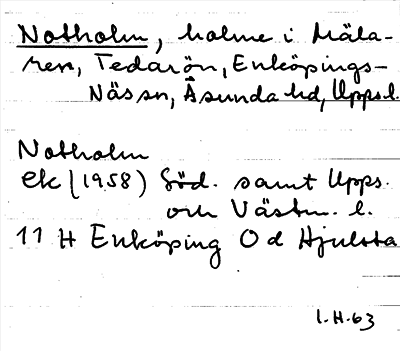 Notholm, holme i Mäla-
ren, Tedarön, Enköpings-
Näs sn, Åsunda hd, Upps. l.
Notholm
ek (1958) Söd. samt Upps.
och Västm. l.
11 H Enköping O d Hjulsta
l. H. 63